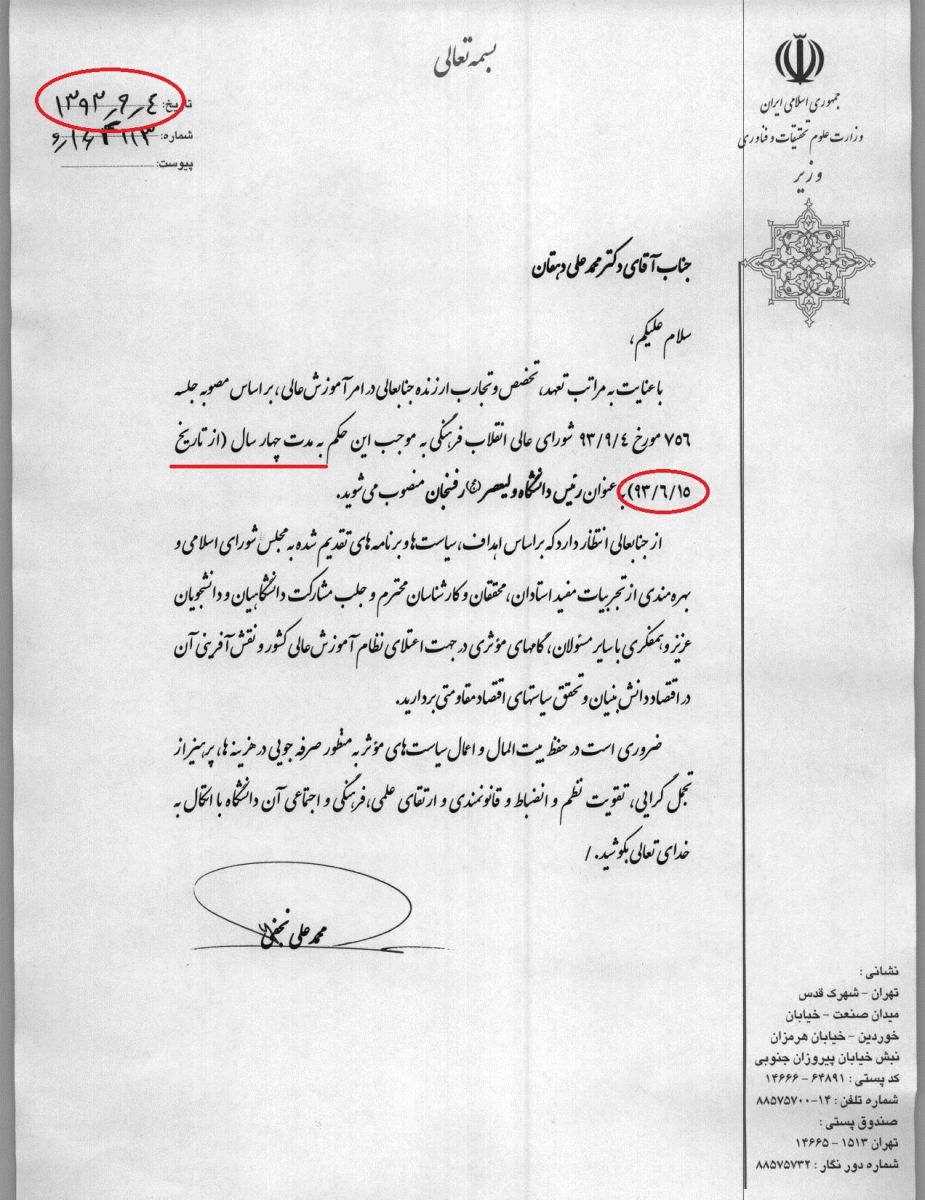 بسمه تعالی
جمهوری اسلامی ایران
وزارت علوم تحقیقات و فناوری
وزیر
تاریخ: ۱۳۹۳٫۹٫۴
شماره:
پیوست:
جناب آقای دکتر محمد علی دهقان
سلام علیکم،
با عنایت به مراتب تعهد، تخصص و تجارب ارزنده جنابعالی در امر آموزش عالی، بر اساس مصوبه جلسه
۷۵۶ مورخ ۹۳/۹/۴ شورای عالی انقلاب فرهنگی به موجب این حکم به مدت چهار سال (از تاریخ
۹۳/۶/۱۵) به عنوان رئیس دانشگاه ولیعصر (عج) رفسنجان منصوب می شوید.
از جنابعالی انتظار دارد که بر اساس اهداف، سیاست ها و برنامه های تقدیم شده به مجلس شورای اسلامی و
بهره مندی از تجربیات مفید استادان، محققان و کارشناسان محترم و جلب مشارکت دانشگاهیان و دانشجویان
عزیز و همفکری با سایر مسئولان، گامهای مؤثری در جهت اعتلای نظام آموزش عالی کشور و نقش آفرینی آن
در اقتصاد دانش بنیان و تحقق سیاستهای اقتصاد مقاومتی بردارید.
ضروری است در حفظ بیت المال و اعمال سیاست های مؤثر به منظور صرفه جویی در هزینه ها، پرهیز از
تجمل گرایی، تقویت نظم و انضباط و قانونمندی و ارتقای علمی، فرهنگی و اجتماعی آن دانشگاه با اتکال به
خدای تعالی بکوشید. /
محمد علی نجفی
نشانی :
تهران - شهرک قدس
میدان صنعت - خیابان
خوردین - خیابان هرمزان
نبش خیابان پیروزان جنوبی
کد پستی : ۶۴۸۹۱ - ۱۴۶۶۶
شماره تلفن : ۱۴-۸۸۵۷۵۷۰۰
صندوق پستی :
تهران ۱۵۱۳ - ۱۴۶۶۵
شماره دور نگار : ۸۸۵۷۵۷۳۲